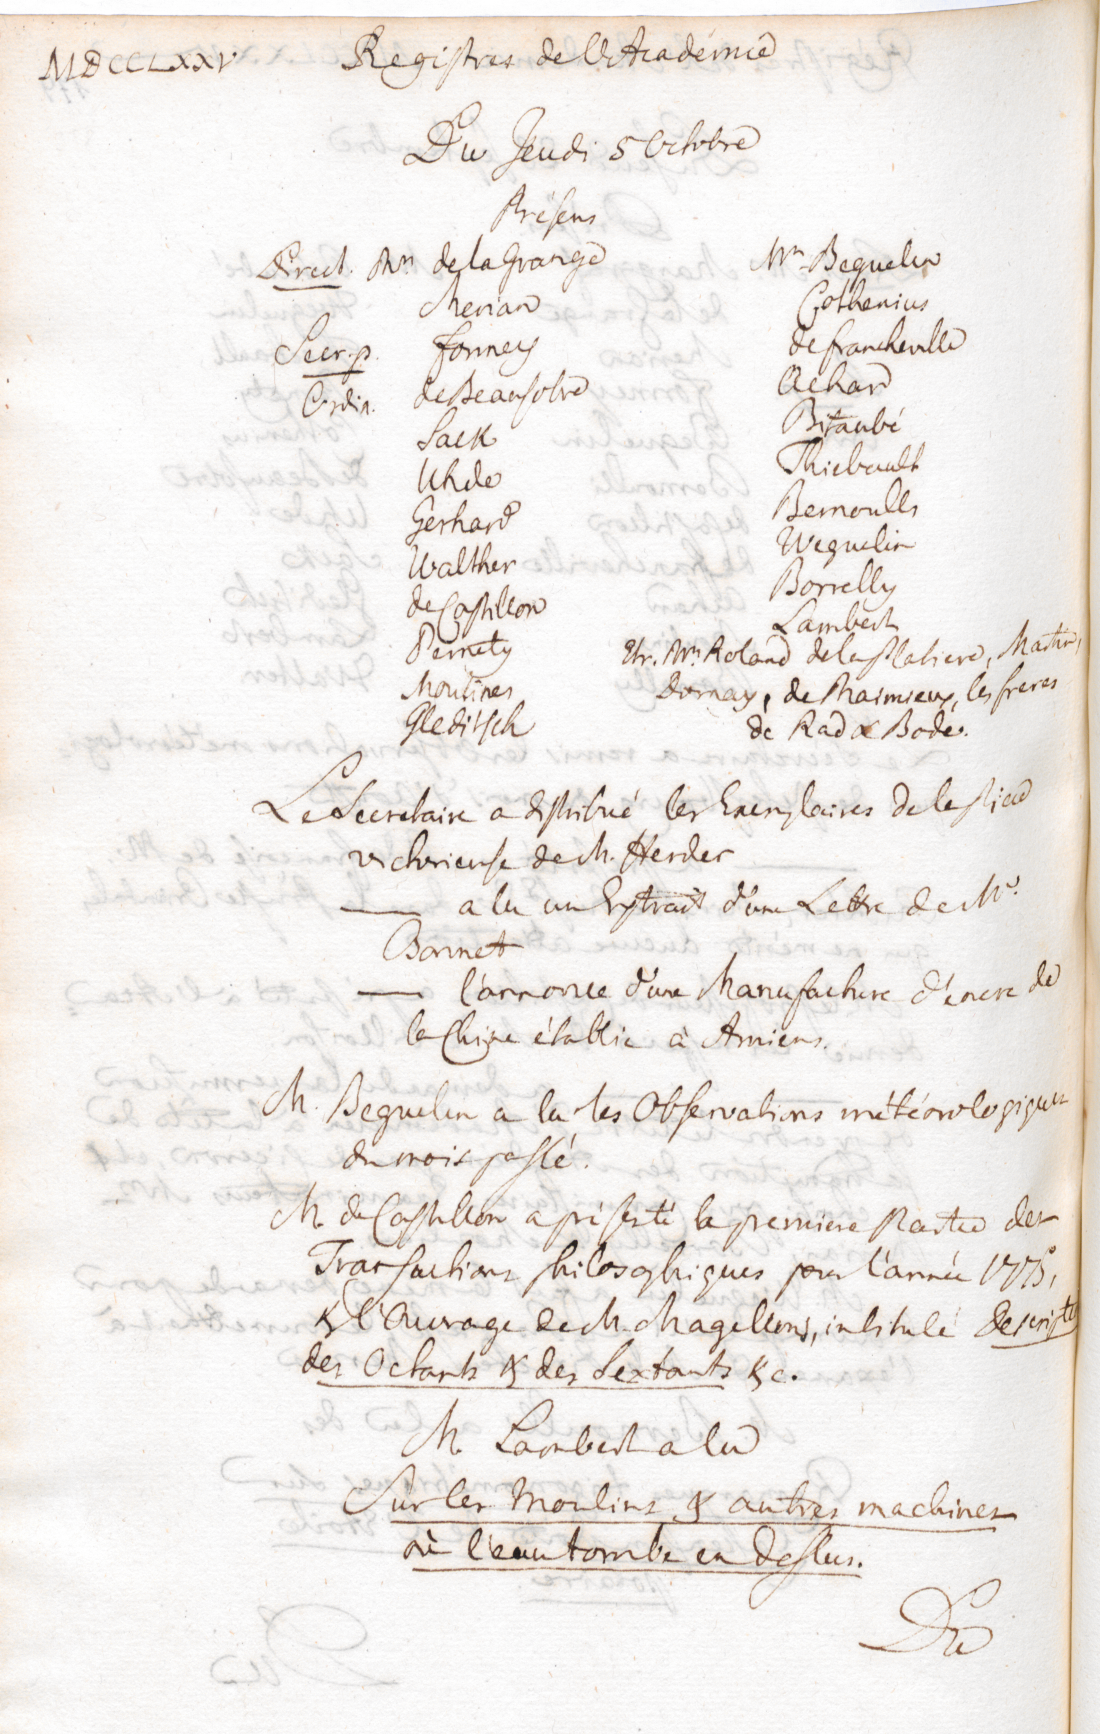 MDCCLXXV Registres de l'Académie
Du Jeudi 5 Octobre
Présens
Direct. Mrs de la Grange
Merian
Secr. p. Formey
Ordin. de Beausobre
Sack
Uhde
Gerhard
Walther
de Castillon
Pernety
Moulines
Gleditsch
Mrs Beguelin
Cothenius
de Francheville
Achard
Bitaubé
Thiebault
Bernoulli
Weguelin
Borrelly
Lambert
Etr. Mrs Roland de la Platiere, Martin,
Dornay, de Maimieux, les freres
de Rad & Bode.
Le Secretaire a distribué les Exemplaires de la piece
victorieuse de M. Herder
— a lu un Extrait d'une Lettre de Mr.
Bonnet
— l'annonce d'une Manufacture d'encre de
la Chine établie à Amiens.
M. Beguelin a lu les Observations météorologiques
du mois passé.
M. de Castillon a présenté la premiere Partie des
Transactions philosophiques pour l'année 1775,
& l'Ouvrage de M. Magellan, intitulé Descript.
des Octants & des Sextants &c.
M. Lambert a lu
Sur les Moulins & autres machines
où l'eau tombe en dessus.
Du